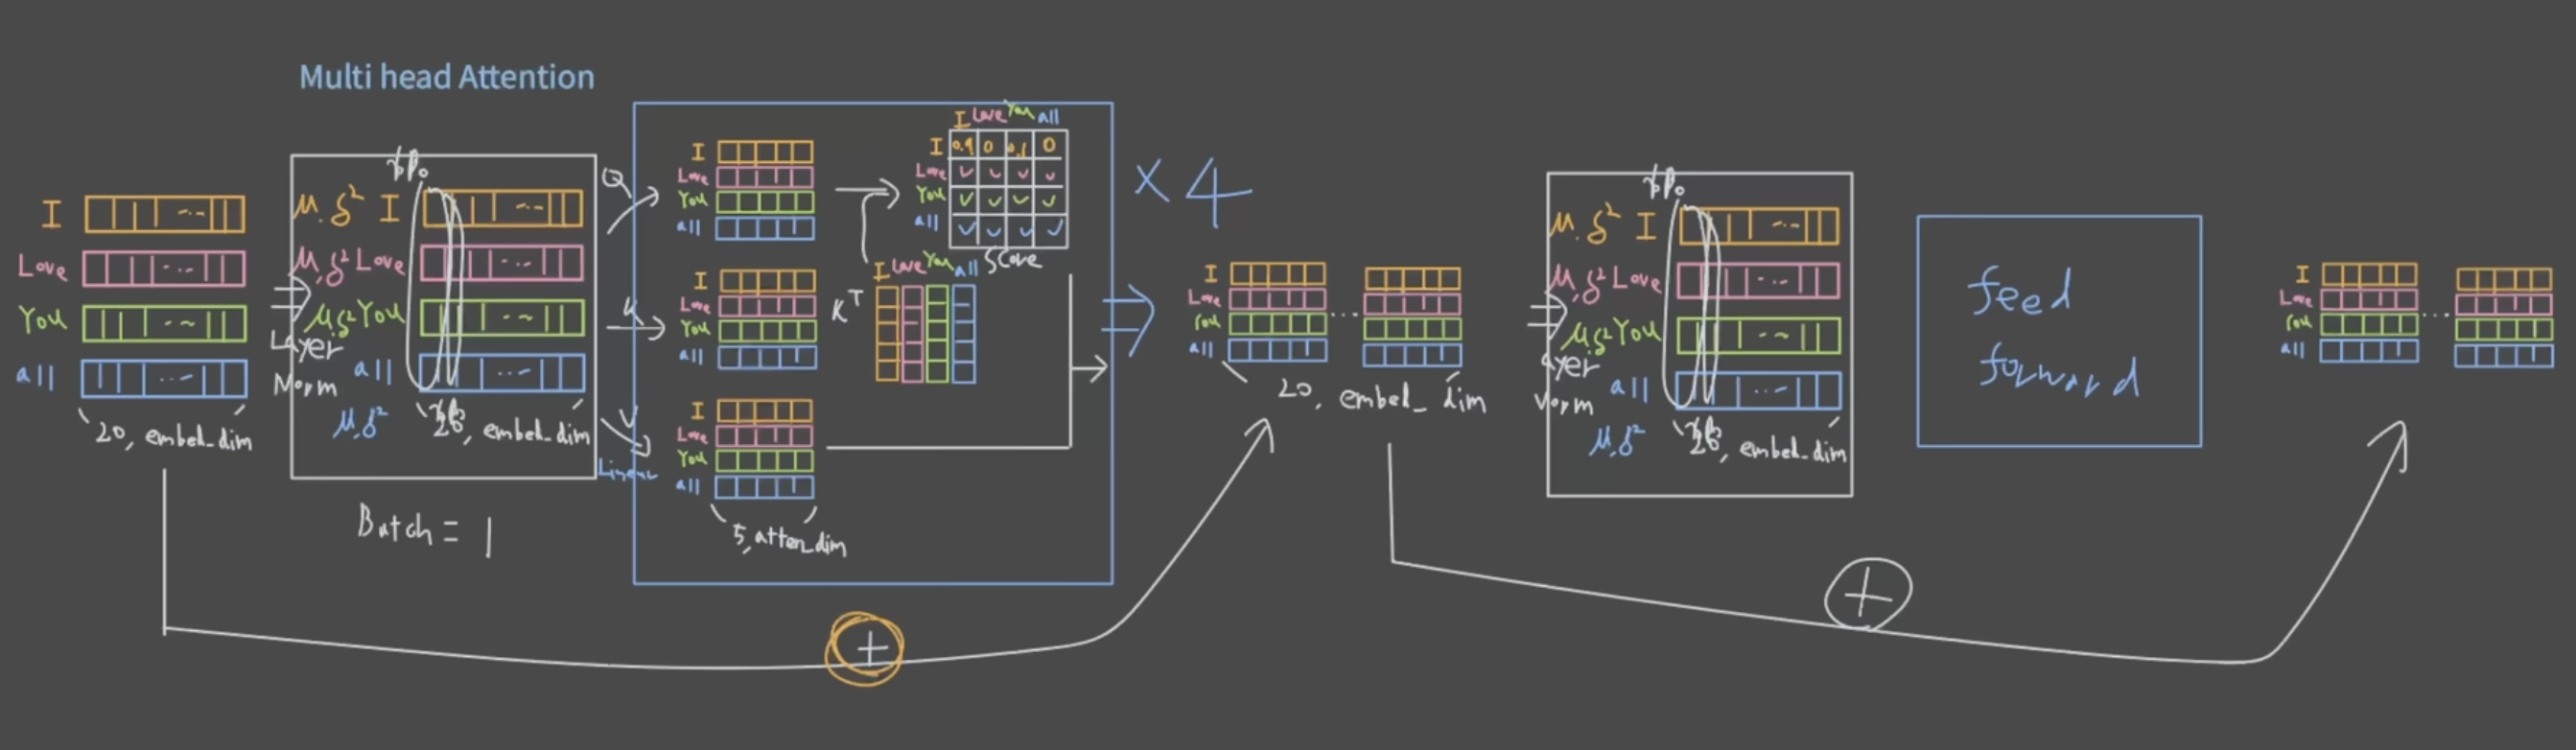 Multi head Attention
I
Love
You
all
20, embed_dim
Layer
Norm
γβ。
μ.δ² I
μ,δ² Love
μ,δ² You
all
μ,δ²
embed_dim
Batch = 1
Q
K
V
Linear
I
Love
You
all
I
Love
You
all
I
Love
You
all
5, atten_dim
I Love You all
I 0.9 0 0.1 0
Love
You
all
Score
Kᵀ
I Love You all
× 4
+
I
Love
You
all
...
20, embed_dim
ayer
Norm
γβ。
μ.δ² I
μ,δ² Love
μ,δ² You
all
μ,δ²
embed_dim
feed
forward
+
I
Love
You
all
...